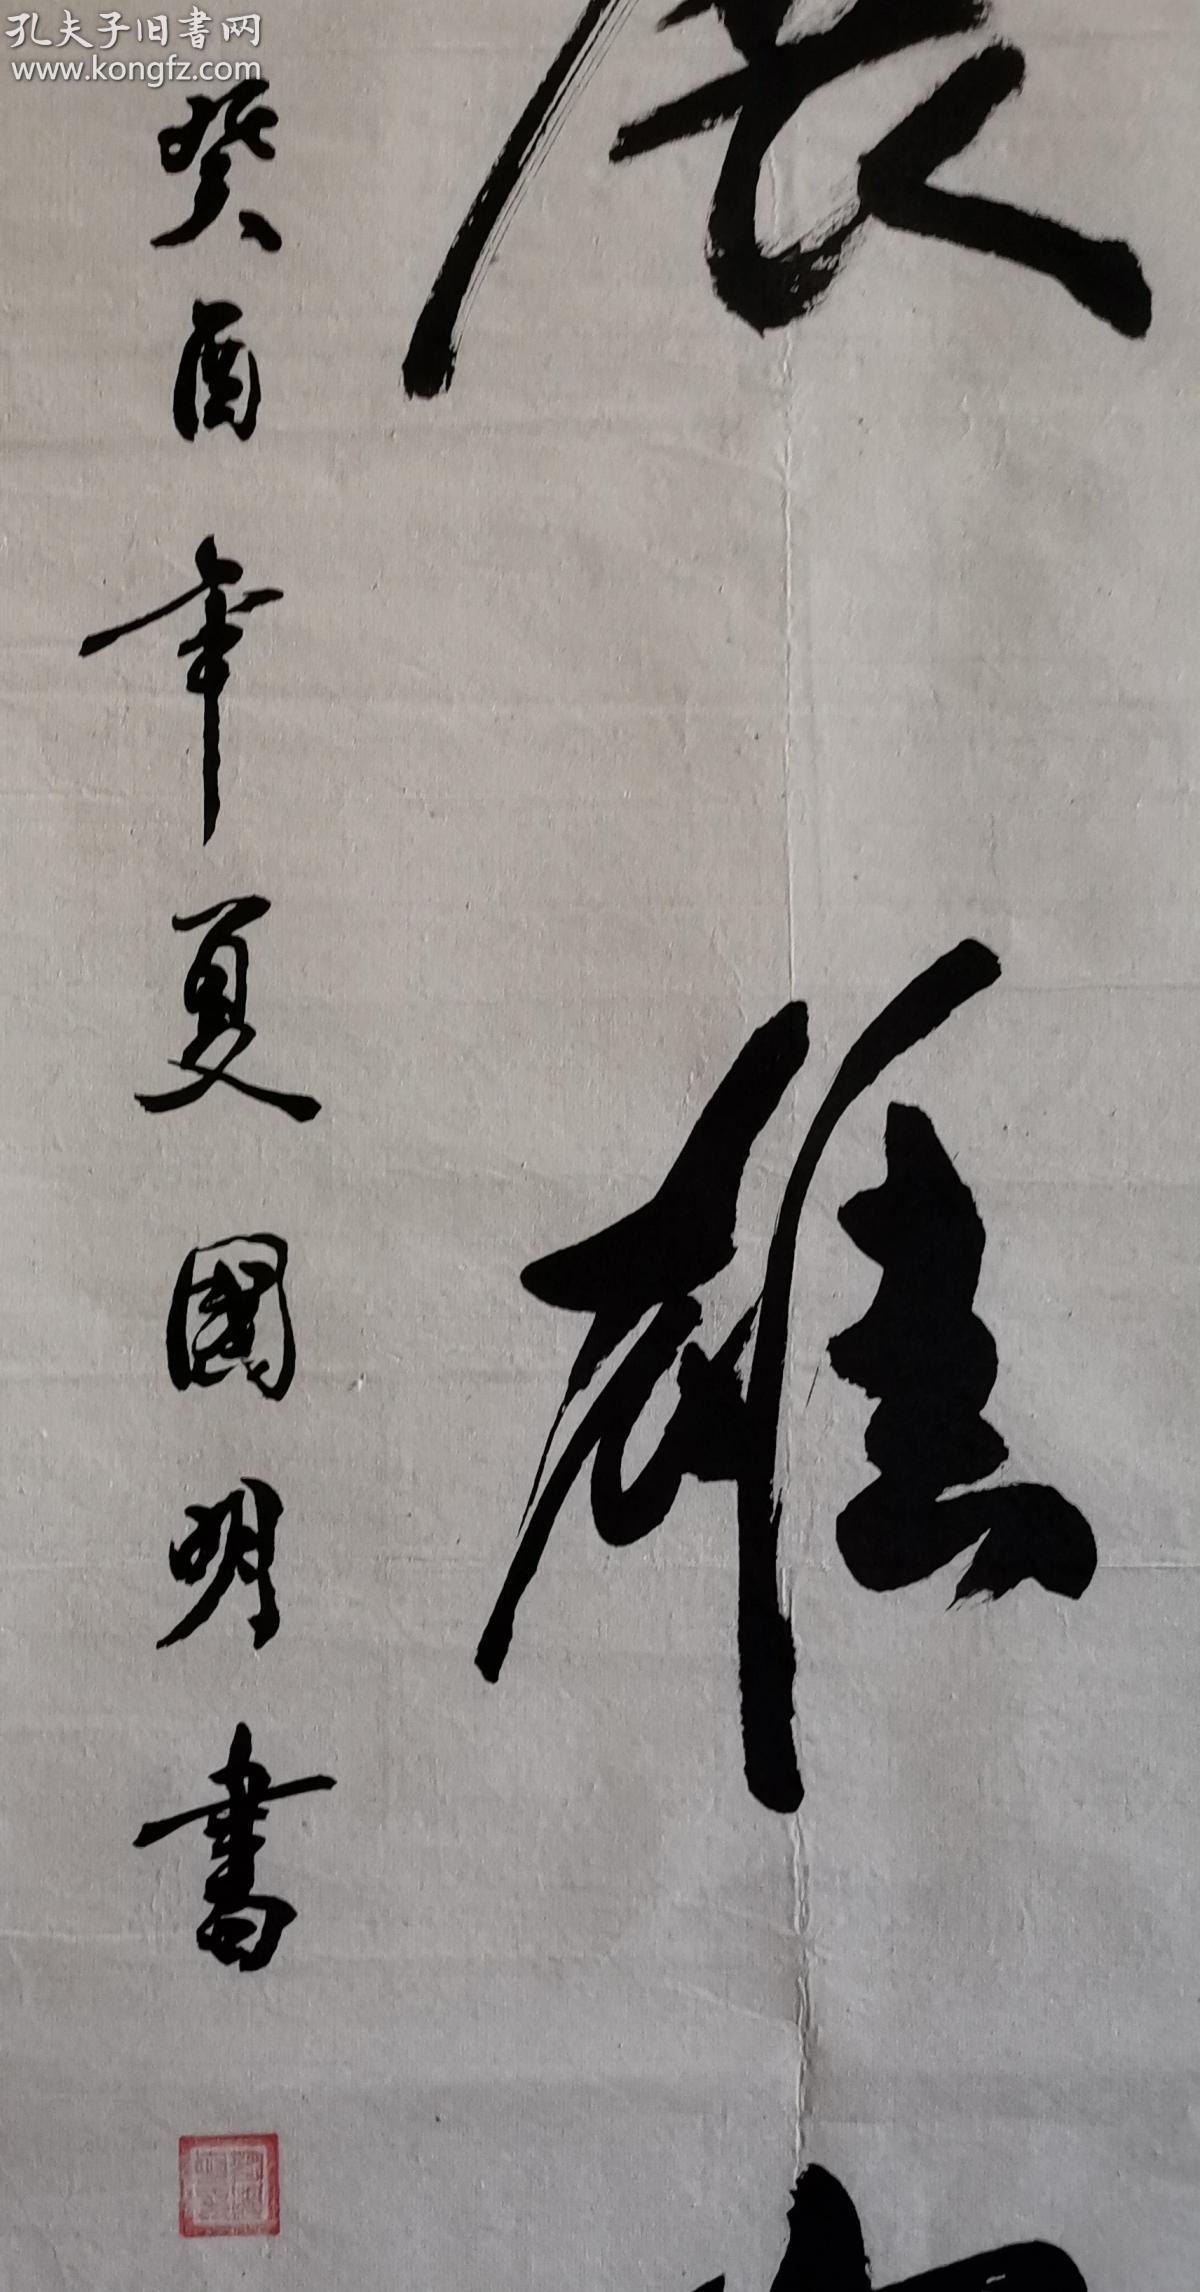 孔夫子旧書网
www.kongfz.com
展雄
癸酉年夏國明書